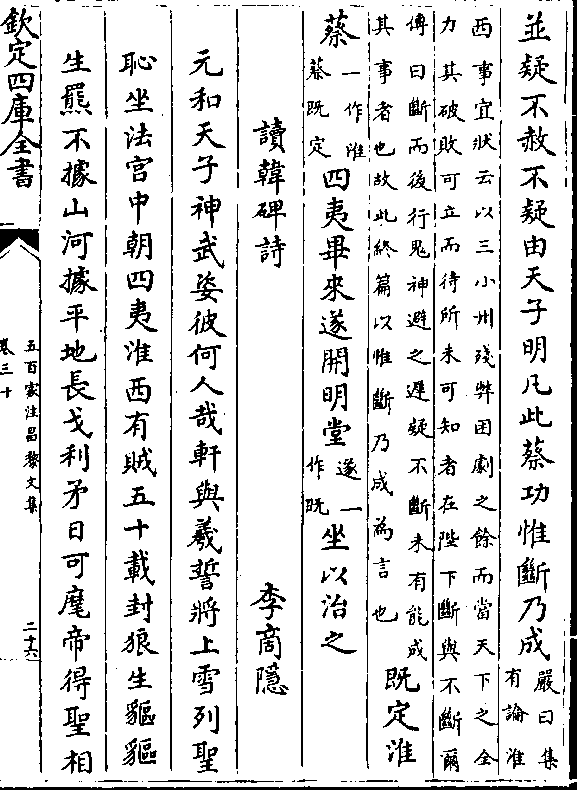 並疑不赦不疑由天子明凡此蔡功惟斷乃成嚴曰集
有論淮
西事宜狀云以三小州殘弊困劇之餘而當天下之全
力其破敗可立而待所未可知者在陛下斷與不斷爾
傳曰斷而後行鬼神避之遲疑不斷未有能成
其事者也故此終篇以惟斷乃成為言也
既定淮
蔡一作淮
蔡既定四夷畢來遂開明堂遂一
作既坐以治之
讀韓碑詩
李商隱
元和天子神武姿彼何人哉軒與羲誓將上雪列聖
恥坐法宫中朝四夷淮西有賊五十載封狼生貙貙
生羆不據山河據平地長戈利矛日可麾帝得聖相
欽定四庫全書
五百家注昌黎文集
卷三十
二十六